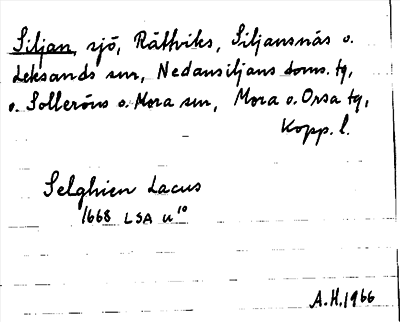 Siljan, sjö, Rättviks, Siljansnäs o.
Leksands snr, Nedansiljans doms. tg,
o. Solleröns o. Mora snr, Mora o. Orsa tg,
Kopp. l.
Selghien Lacus
1668 LSA u¹⁰
A.H. 1966